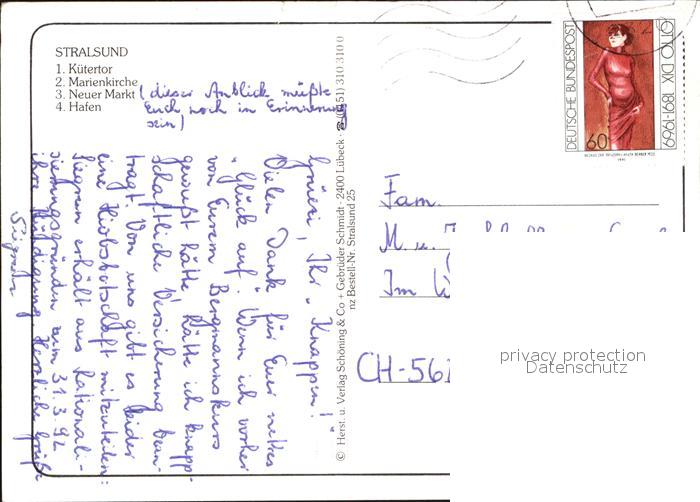 STRALSUND
1. Kütertor
2. Marienkirche
3. Neuer Markt (dieser Anblick müßte
4. Hafen Euch noch in Erinnerung
sein)
Grüezi, Ihr "Knappen"!
Vielen Dank für Euer nettes
"Glück auf". Wenn ich vorher
von Eurem Bergmannskurs
gewußt hätte, hätte ich knapp-
schaftliche Versicherung bean-
tragt. Von uns gibt es leider
eine Hiobsbotschaft mitzuteilen:
Siegrun erhält aus Rationali-
sierungsgründen zum 31.3.92
ihre Kündigung. Herzliche Grüße
© Herst. u. Verlag Schöning & Co + Gebrüder Schmidt · 2400 Lübeck · ☎ (0451) 310 310 0
nz Bestell-Nr. Stralsund 25
DEUTSCHE BUNDESPOST
60
OTTO DIX 1891-1969
Fam.
M. u.
Im
CH-561
privacy protection
Datenschutz